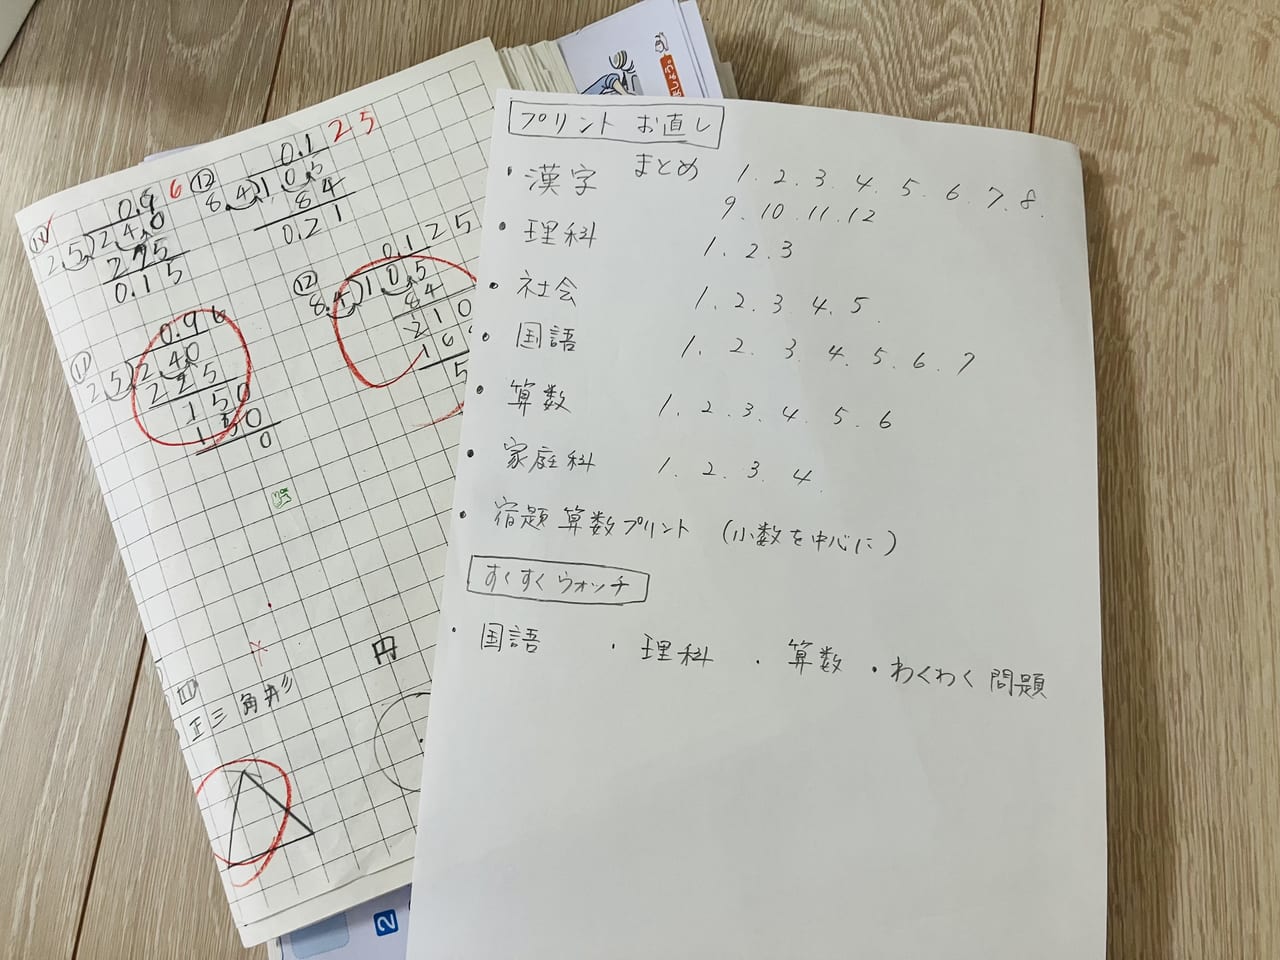 プリント お直し
・漢字 まとめ 1. 2. 3. 4. 5. 6. 7. 8.
9. 10. 11. 12
・理科 1. 2. 3
・社会 1. 2. 3. 4. 5.
・国語 1. 2. 3. 4. 5. 6. 7
・算数 1. 2. 3. 4. 5. 6
・家庭科 1. 2. 3. 4.
・宿題 算数プリント (小数を中心に)
すくすくウォッチ
・国語 ・理科 ・算数 ・わくわく問題
0.96
25)2.40
225
0.15
⑫ 0.125
8.4)1.05
84
0.21
⑪ 0.96
25)2.40
225
150
150
0
⑫ 0.125
8.4)1.05
84
210
16
5
円
正三角形
2